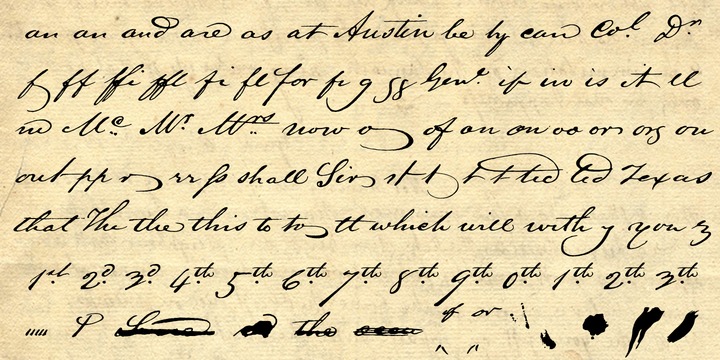 an an and are as at Austin be by can Col. Dr.
f ff ffi ffl fi fl for fr g gg Genl. if in is it ll
nd Mc. Mr. Mrs. now o of an on oo or org ou
out pp r rr ss shall Sir st t t t tted ted Texas
that The the this to to tt which will with y you z
1st 2d 3d 4th 5th 6th 7th 8th 9th 0th 1th 2th 3th
the of or